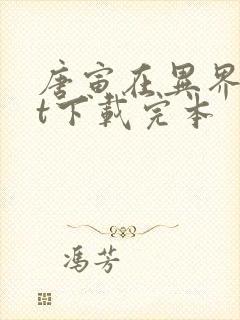 唐寅在異界
t下載完本
馮芳